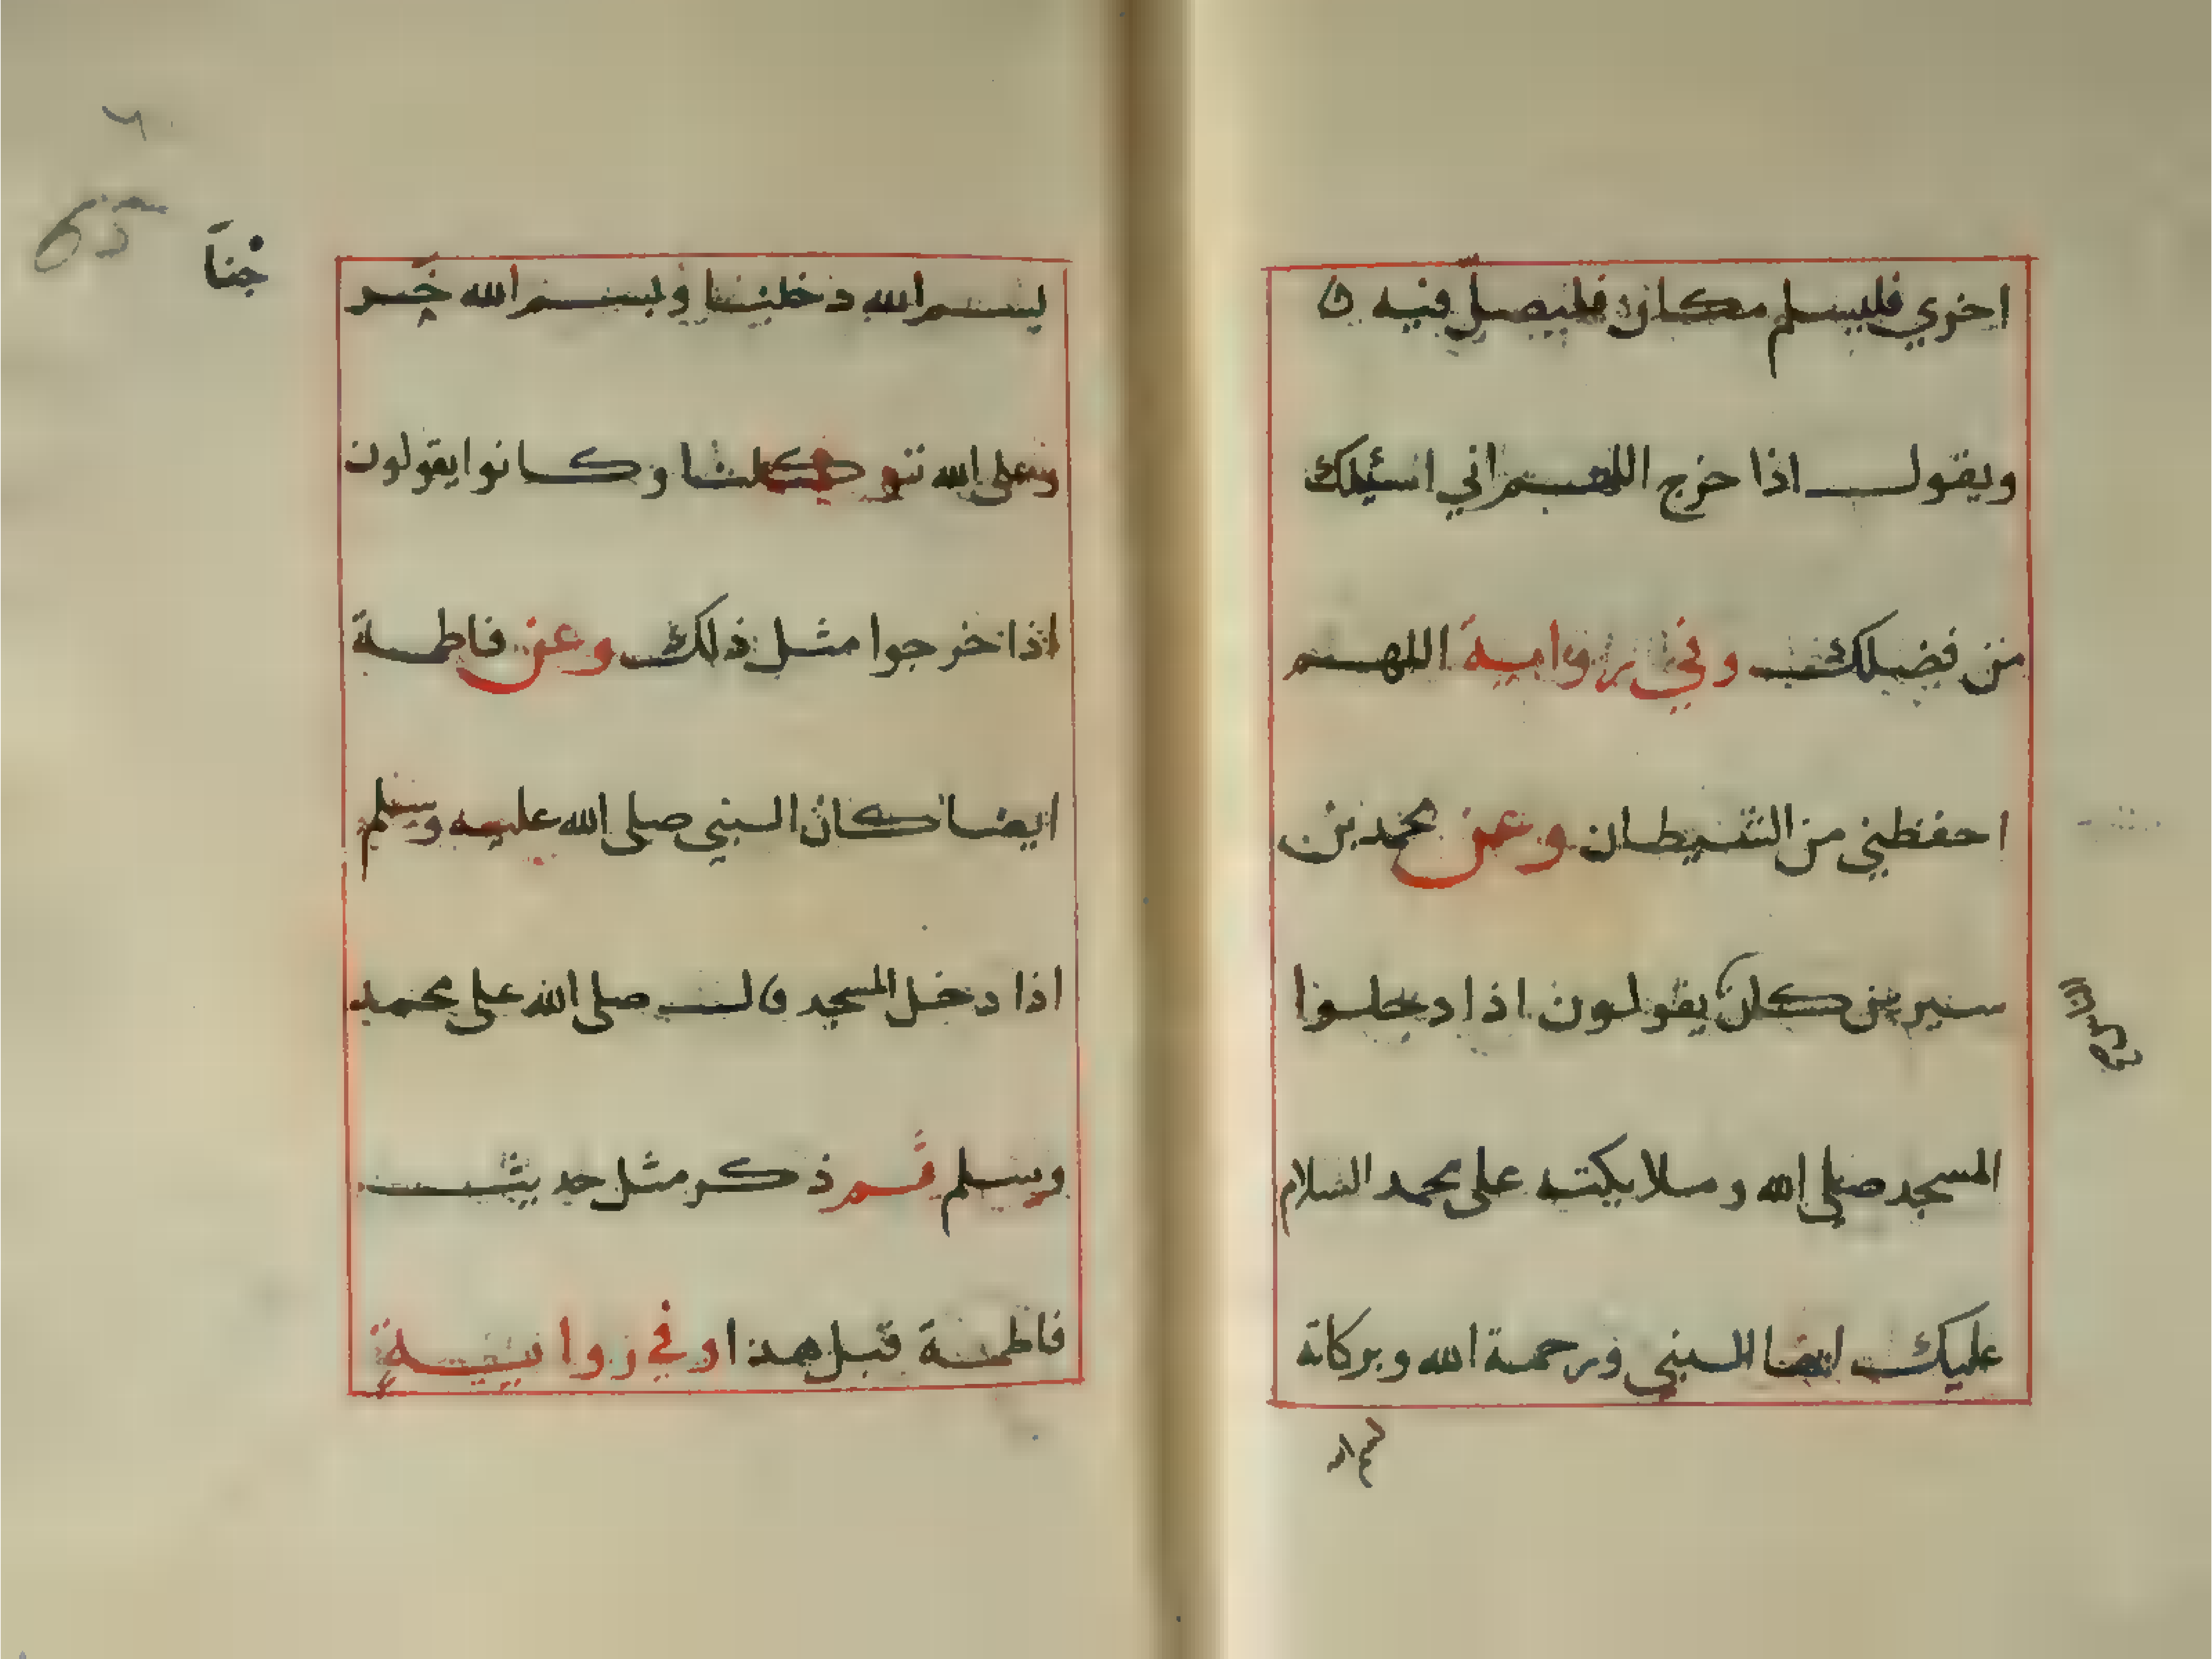 اخري فليسلم مكان فليصل فيه
ويقول اذا خرج اللهم اني اسئلك
من فضلك وفي رواية اللهم
احفظني من الشيطان وعن محمد بن
سيرين كان يقولون اذا دخلوا
المسجد صلي الله وملايكته على محمد السلام
عليك ايها النبي ورحمة الله وبركاته
بسم الله دخلنا وبسم الله خر
جنا
وعلى الله توكلنا وكانوا يقولون
اذا خرجوا مثل ذلك وعن فاطمة
ايضا كان النبي صلى الله عليه وسلم
اذا دخل المسجد قال صلى الله على محمد
وسلم ثم ذكر مثل حديث
فاطمة قبل هذا وفي رواية